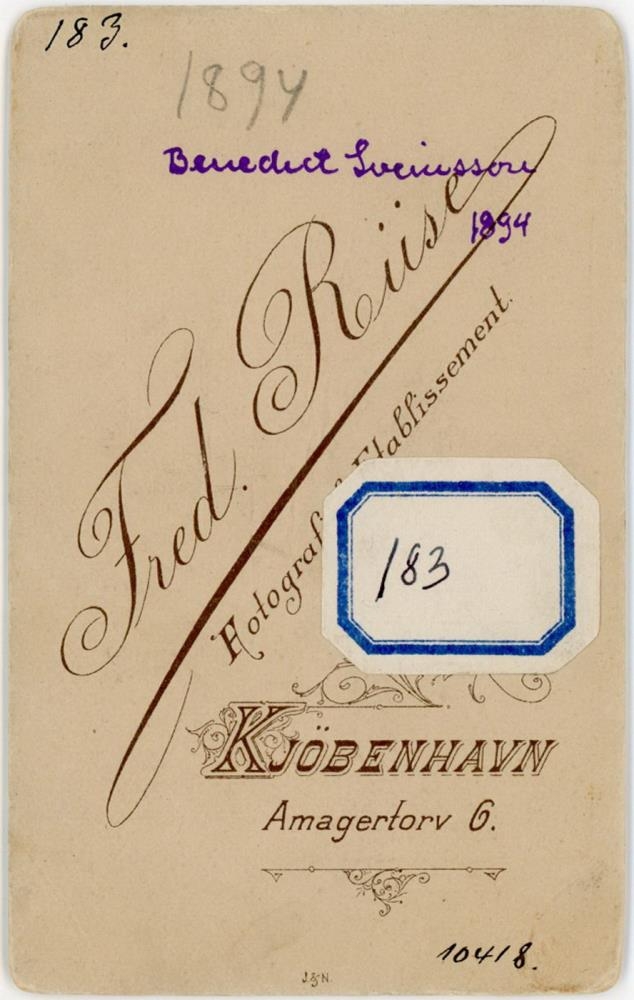 183.
1894
Benedict Sveinsson
1894
Fred. Riise
Fotografi Etablissement.
183
KJÖBENHAVN
Amagertorv 6.
10418.
J.&N.